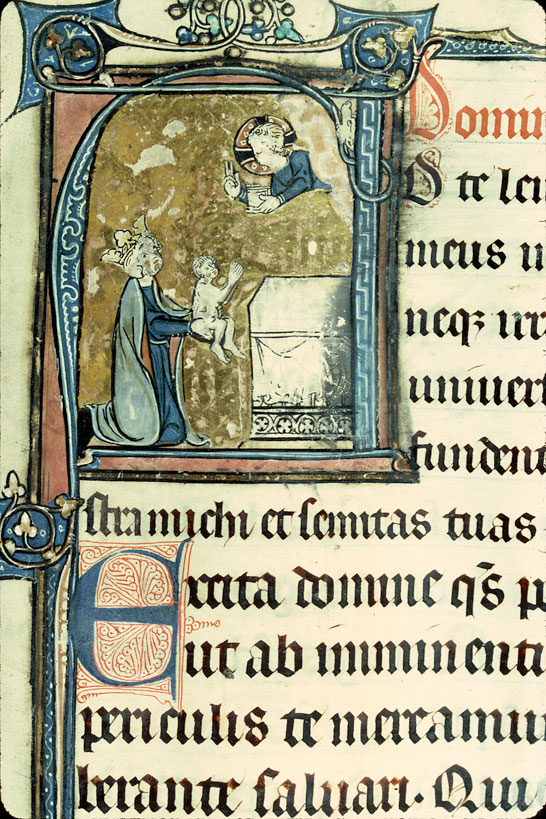 Domin
D te le
meus
neq₃ irr
uniuer
fundent
stra michi et semitas tuas
Excita domine qs̄ p
ut ab imminenti
periculis te mereamur
berante saluari. Qui